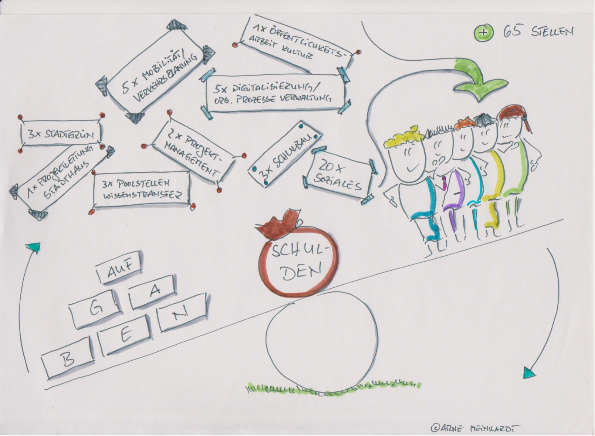 1x ÖFFENTLICHKEITS-
ARBEIT KULTUR
+ 65 STELLEN
5x MOBILITÄT/
VERKEHRSPLANUNG
5x DIGITALISIERUNG/
ORG. PROZESSE VERWALTUNG
3x STADTGRÜN
2x PROJEKT-
MANAGEMENT
3x SCHULBAU
1x PROJEKTLEITUNG
STADTHAUS
3x POOLSTELLEN
WISSENSTRANSFER
20x
SOZIALES
SCHUL-
DEN
AUF
G A
B E N
@ARNE MEINHARDT